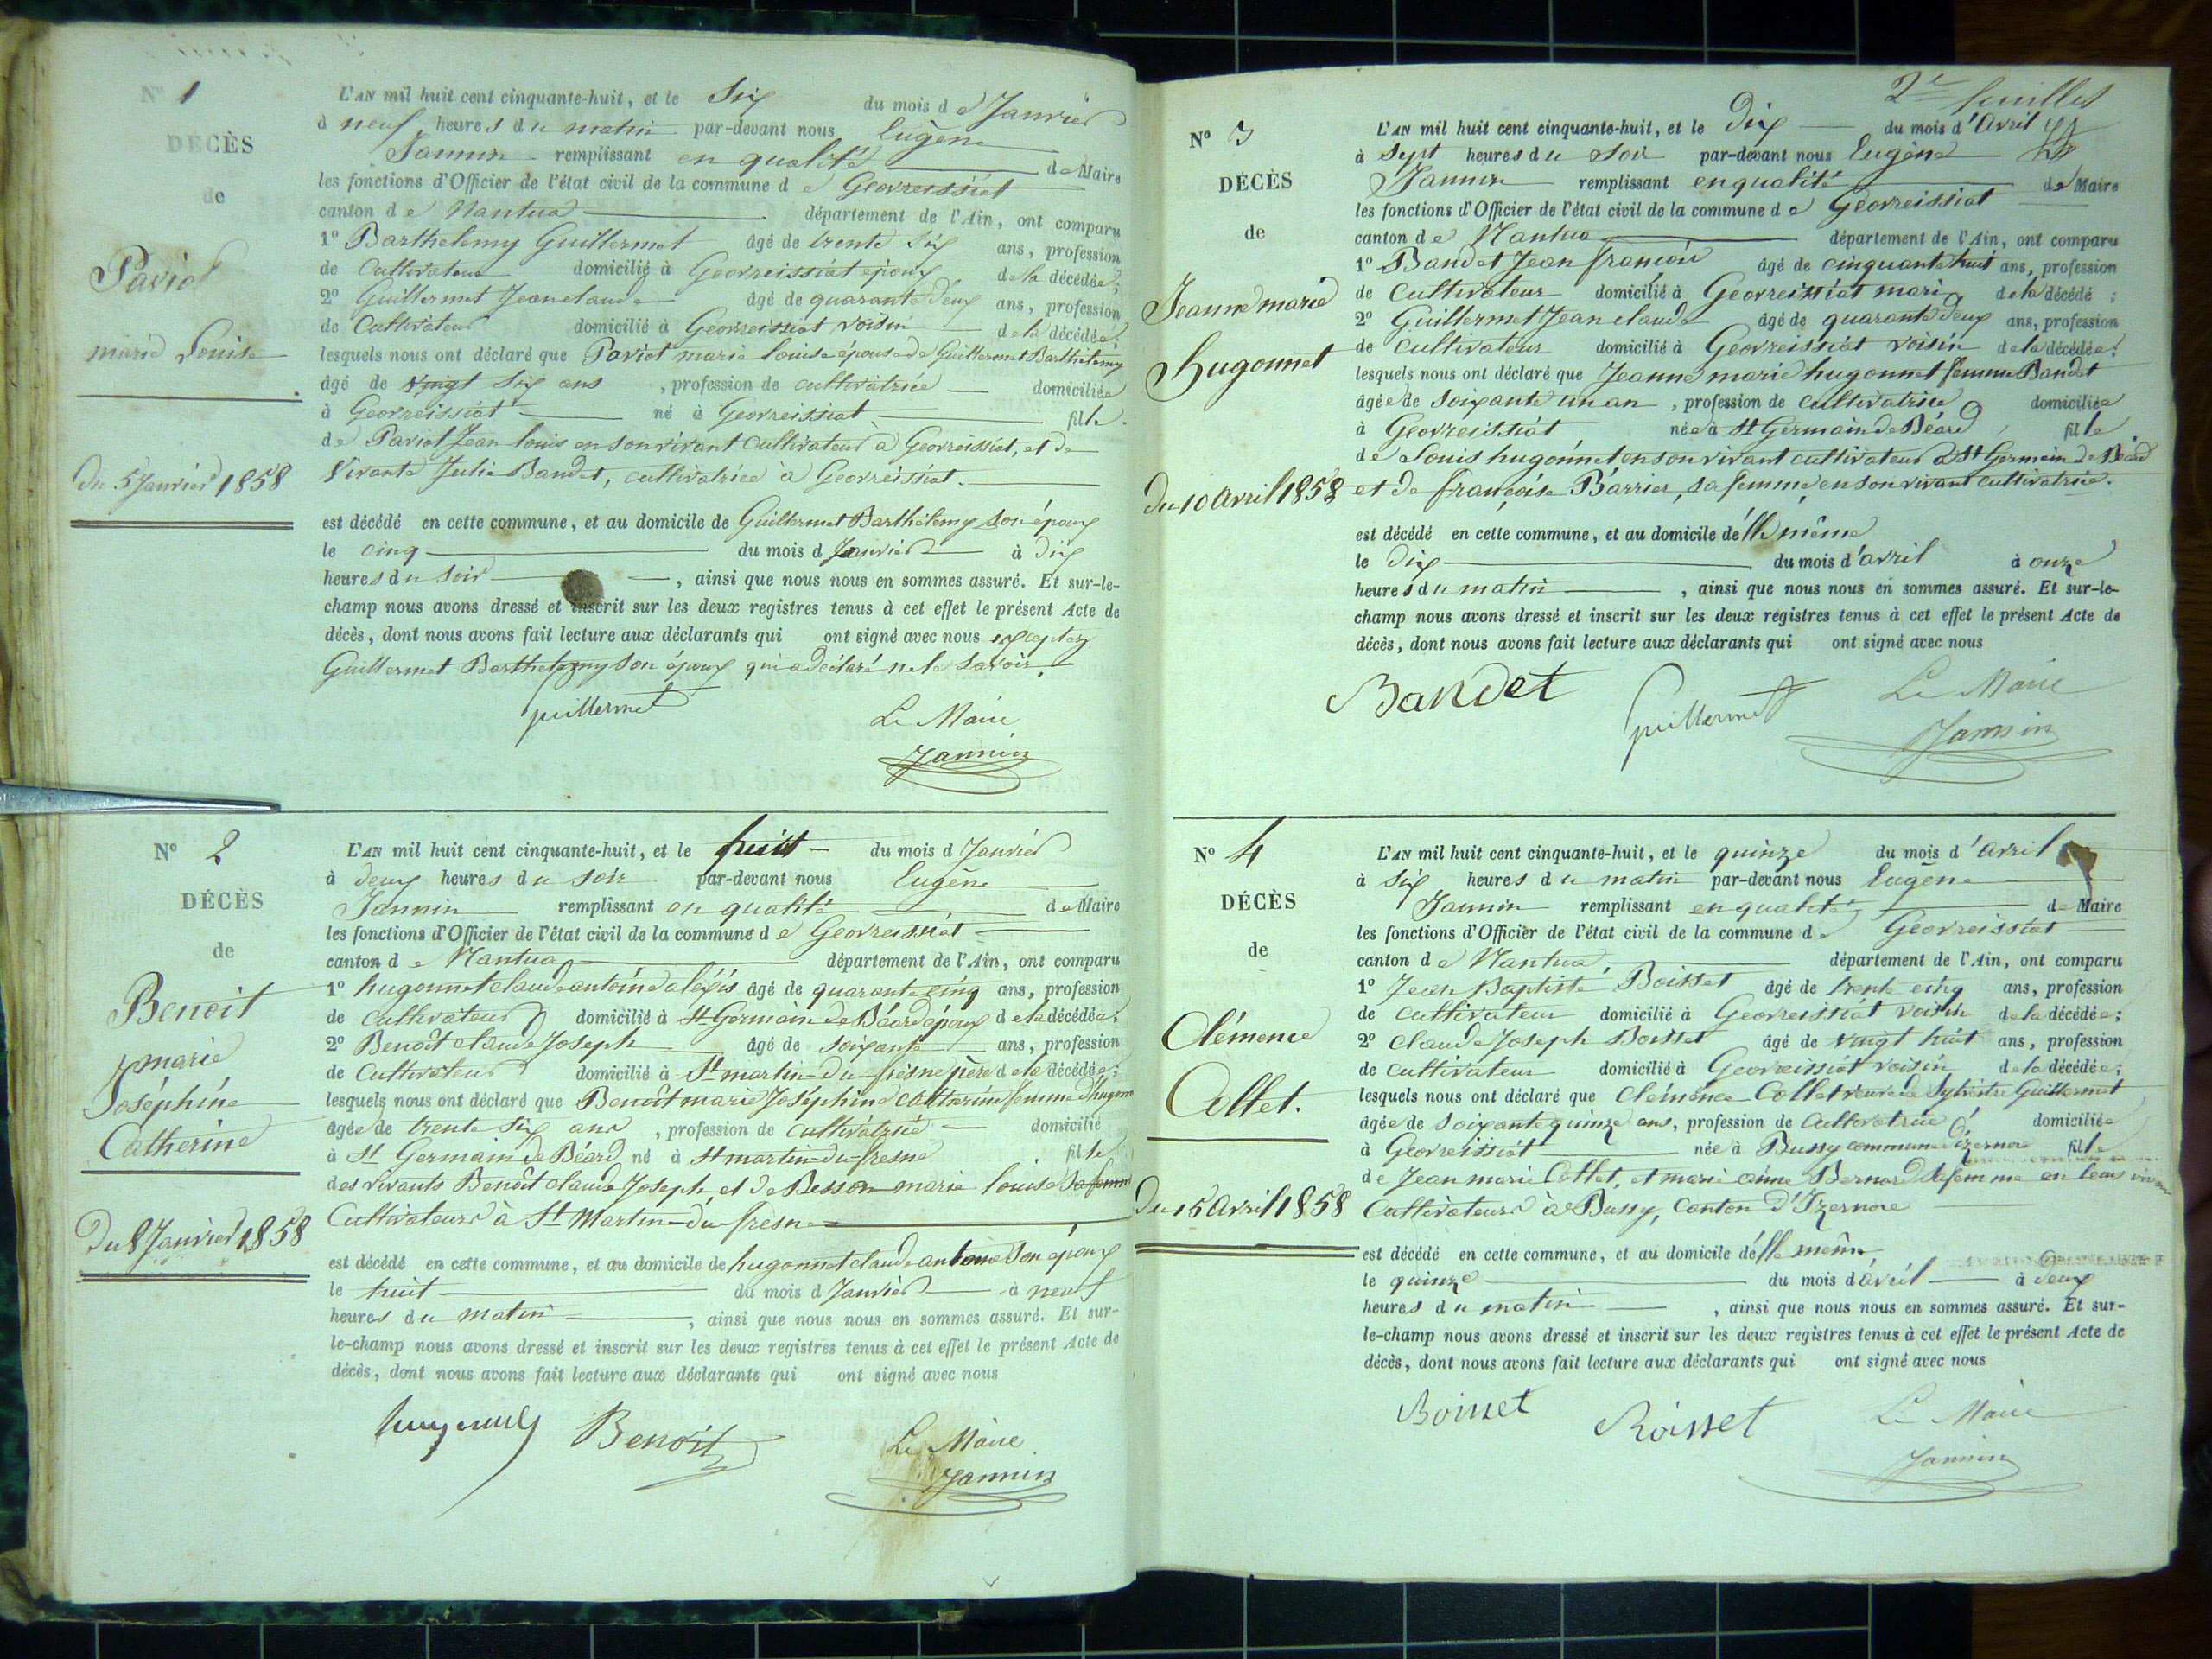 N° 1
DÉCÈS
de
Paviot
marie Louise
Du 5 Janvier 1858
L'AN mil huit cent cinquante-huit, et le Six du mois de Janvier
à neuf heures du matin par-devant nous Eugène
Jannin remplissant en qualité de Maire
les fonctions d'Officier de l'état civil de la commune de Geovreissiat
canton de Nantua département de l'Ain, ont comparu
1° Barthelemy Guillermet âgé de trente Six ans, profession
de Cultivateur domicilié à Geovreissiat époux de la décédée;
2° Guillermet Jeanclaude âgé de quarante deux ans, profession
de Cultivateur domicilié à Geovreissiat voisin de la décédée;
lesquels nous ont déclaré que Paviot marie louise épouse de Guillermet Barthélemy
âgé de vingt Six ans, profession de cultivatrice domiciliée
à Geovreissiat né à Geovreissiat fille
de Paviot Jean louis en son vivant cultivateur à Geovreissiat, et de
vivante Julie Bandet, cultivatrice à Geovreissiat.
est décédé en cette commune, et au domicile de Guillermet Barthélemy son époux
le cinq du mois d Janvier à dix
heures du soir, ainsi que nous nous en sommes assuré. Et sur-le-
champ nous avons dressé et inscrit sur les deux registres tenus à cet effet le présent Acte de
décès, dont nous avons fait lecture aux déclarants qui ont signé avec nous excepter
Guillermet Barthelemy son époux qui a déclaré ne le savoir.
guillermet
Le Maire
Jannin
N° 2
DÉCÈS
de
Benoit
marie
Joséphine
Catherine
Du 8 Janvier 1858
L'AN mil huit cent cinquante-huit, et le huit du mois d Janvier
à deux heures du soir par-devant nous Eugène
Jannin remplissant en qualité de Maire
les fonctions d'Officier de l'état civil de la commune de Geovreissiat
canton de Nantua département de l'Ain, ont comparu
1° hugonnet claude antoine aléxis âgé de quarante cinq ans, profession
de cultivateur domicilié à St Germain de Béard époux de la décédée;
2° Benoît claude Joseph âgé de soixante ans, profession
de Cultivateur domicilié à St martin-du-fresne père de la décédée;
lesquels nous ont déclaré que Benoît marie Joséphine Catherine femme d'hugonn
âgée de trente Six ans, profession de cultivatrice domicilié
à St Germain de Béard né à St martin-du-fresne fille
des vivants Benoît claude Joseph, et de Besson marie louise Sa femme
Cultivateurs à St Martin-du-fresne
est décédé en cette commune, et au domicile de hugonnet claude antoine Son époux
le huit du mois d Janvier à neuf
heures du matin, ainsi que nous nous en sommes assuré. Et sur-
le-champ nous avons dressé et inscrit sur les deux registres tenus à cet effet le présent Acte de
décès, dont nous avons fait lecture aux déclarants qui ont signé avec nous
Benoit
Le Maire
Jannin
2e feuillet
N° 3
DÉCÈS
de
Jeanne marie
Hugonnet
Du 10 avril 1858
L'AN mil huit cent cinquante-huit, et le Dix du mois d'Avril
à sept heures du soir par-devant nous Eugène
Jannin remplissant en qualité de Maire
les fonctions d'Officier de l'état civil de la commune de Geovreissiat
canton de Nantua département de l'Ain, ont comparu
1° Bandet Jean françois âgé de cinquante huit ans, profession
de Cultivateur domicilié à Geovreissiat mari de la décédé;
2° Guillermet Jean claude âgé de quarante deux ans, profession
de cultivateur domicilié à Geovreissiat voisin de la décédée;
lesquels nous ont déclaré que Jeanne marie hugonnet femme Bandet
âgée de soixante un an, profession de cultivatrice domiciliée
à Geovreissiat née à St Germain de Béard fille
de Louis hugonnet en son vivant cultivateur à St Germain de Béard
et de françoise Barrier, sa femme, en son vivant cultivatrice.
est décédé en cette commune, et au domicile d'elle même
le dix du mois d'avril à onze
heures du matin, ainsi que nous nous en sommes assuré. Et sur-le-
champ nous avons dressé et inscrit sur les deux registres tenus à cet effet le présent Acte de
décès, dont nous avons fait lecture aux déclarants qui ont signé avec nous
Bandet
guillermet
Le Maire
Jannin
N° 4
DÉCÈS
de
Clémence
Collet.
Du 15 Avril 1858
L'AN mil huit cent cinquante-huit, et le quinze du mois d'avril
à six heures du matin par-devant nous Eugène
Jannin remplissant en qualité de Maire
les fonctions d'Officier de l'état civil de la commune de Geovreissiat
canton de Nantua département de l'Ain, ont comparu
1° Jean Baptiste Boisset âgé de trente cinq ans, profession
de cultivateur domicilié à Geovreissiat voisin de la décédée;
2° Claude Joseph Boisset âgé de vingt huit ans, profession
de cultivateur domicilié à Geovreissiat voisin de la décédée;
lesquels nous ont déclaré que Clémence Collet veuve de Sylvestre Guillermet
âgée de soixante quinze ans, profession de Cultivatrice domiciliée
à Geovreissiat née à Bussy commune d'izernore fille
de Jean marie Collet, et marie aimé Bernard Sa femme en leur vivan
Cultivateurs à Bussy, Canton d'Izernore
est décédé en cette commune, et au domicile d'elle même
le quinze du mois d'avril à deux
heures du matin, ainsi que nous nous en sommes assuré. Et sur-
le-champ nous avons dressé et inscrit sur les deux registres tenus à cet effet le présent Acte de
décès, dont nous avons fait lecture aux déclarants qui ont signé avec nous
Boisset
Boisset
Le Maire
Jannin